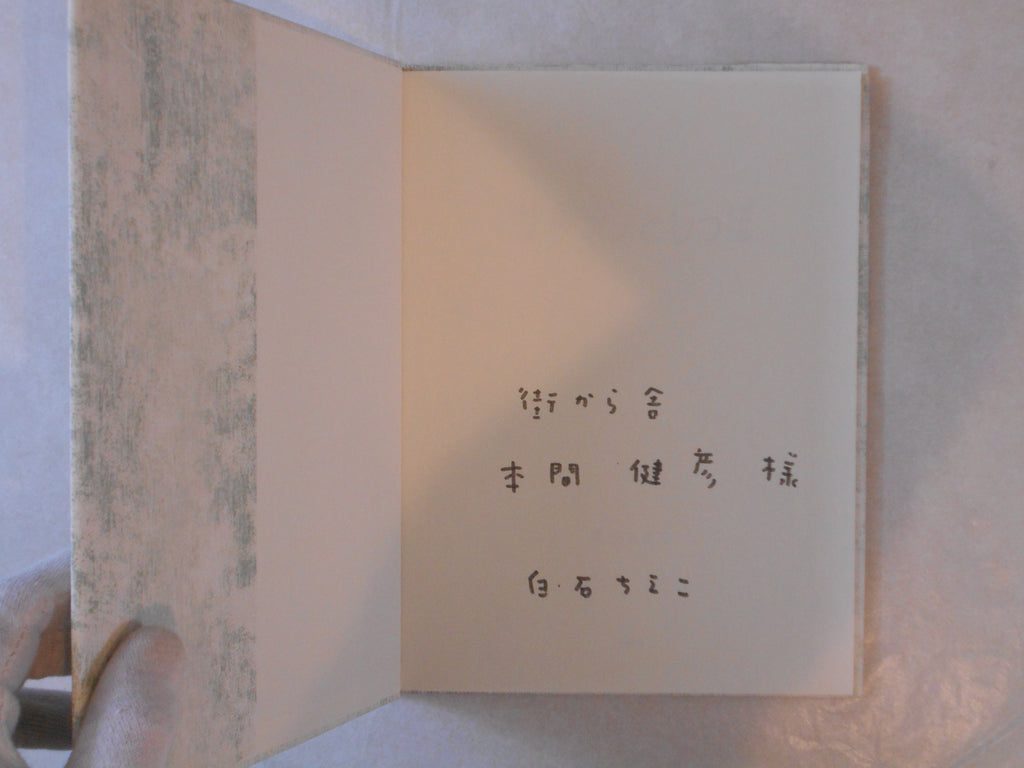 街から舎
本間 健彦 様
白石ちえこ